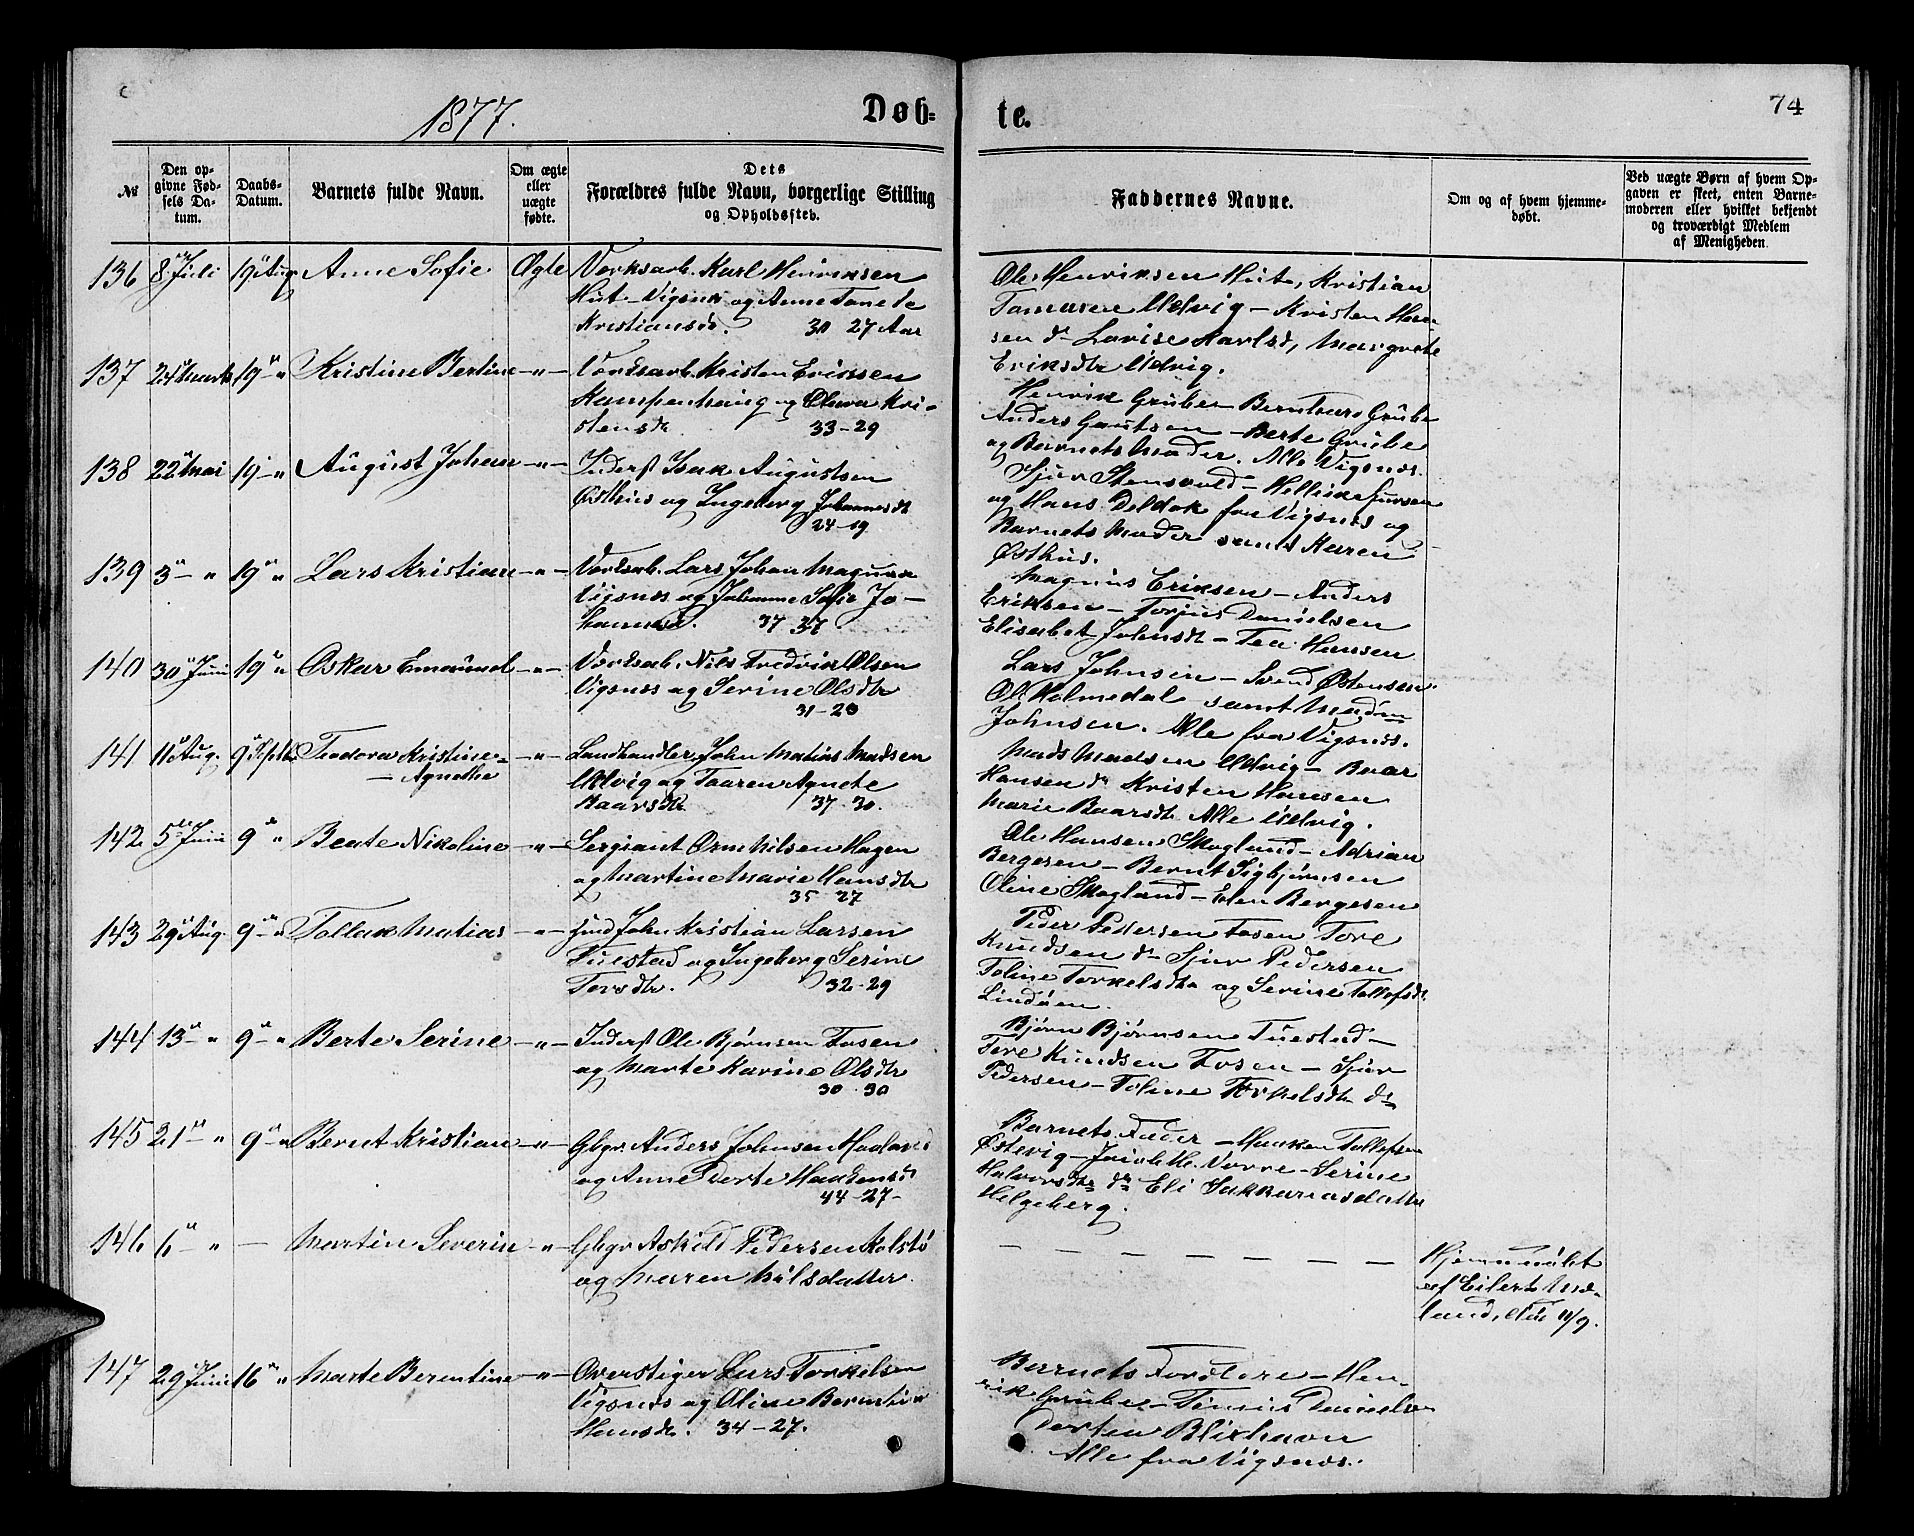 1877.
Døb-
te.
74
№
Den op-
givne Fød-
sels Da-
tum.
Daabs-
Datum.
Barnets fulde Navn.
Om ægte
eller
uægte
fødte.
Dets
Forældres fulde Navn, borgerlige Stilling
og Opholdssted.
Faddernes Navne.
Om og af hvem hjemme-
døbt.
Ved uægte Børn af hvem Op-
gaven er skeet, enten Barne-
moderen eller hvilket bekjendt
og troværdigt Medlem
af Menigheden.
136 8 Juli 19 Aug Anne Sofie Ægte Værksarb. Karl Henriksen
Hut Vigsnæs og Anne Tomete
Kristiansdr. 30 27 Aar
Ole Henriksen Hut, Kristian
Tomasen Udvig - Kristen Han-
sen do Lovise Karlsd, Margrete
Eriksdtr Udvig.
137 24 Marts 19 - " Kristine Bertine - " - Værksarb. Kristen Eriksen
Kampenhaug og Olava Kri-
stensdr. 33-29
Henrik Grube - Bernhard Grube
Anders Gautsen - Berte Grube
og Barnets Moder. Alle Vigsnæs.
138 22 Mai 19 - " August Johan - " - Inderst Isak Augustsen
Østhus og Ingeberg Johannesdt
24-19
Sjur Stensvold -
og Hans Deldok fra Vigsnæs og
Barnets Moder samt Karen
Østhus.
139 3 - " 19 " Lars Kristian - " - Værksab. Lars Johan Magnus
Vigsnæs og Johanne Sofie Jo-
hannesd. 37 37
Magnus Eriksen - Anders
Eriksen - Torjus Danielsen
Elisabet Johnsdt - Tea Hansen
140 30 Juni 19 " Oskar Emanuel - " - Værksab. Nils Fredrik Olsen
Vigsnæs og Serine Olsdtr
31-28
Lars Johnsen - Svend Østensen
Ol. Holmedal samt Madm
Johnsen. Alle fra Vigsnæs.
141 11 Aug. 9 Septbr Teodora Kristine
- Agnethe - " - Landhandler John Matias Madsen
Udvig og Taaren Agnete
Baarsdtr 37-30.
Mads Madsen Udvig - Baar
Hansen do Kristen Hansen
Marie Baarsdt. Alle Udvig.
142 5 Juni 9 " Beate Nikoline - " - Sergiant Orm Nilsen Hagen
og Martine Marie Hansdtr
35 27
Ole Hansen Skogland - Adrian
Bergesen - Bernt Sigbjørnsen
Oline Skogland - Elen Bergesen
143 29 Aug. 9 - " Tollak Matias - " - Ind John Kristian Larsen
Tuestad og Ingeberg Serine
Torsdtr. 32-29
Peder Pedersen Fosen Tore
Knudsen do Sjur Pedersen
Toline Torkelsdtr og Serine Tollefsdt
Lindøen.
144 13 - " 9 - " Berte Serine - " - Inderst Ole Bjørnsen Fosen
og Marte Karine Olsdtr
30-30
Bjørn Bjørnsen Tuestad -
Tore Knudsen Fosen - Sjur
Pedersen - Toline Torkelsdtr do
145 21 - " 9 - " Bernt Kristian - " - Gbgr. Anders Johnsen
og Anne Dorte Haakensd
44-27-
Barnets Fader - Haaken Tollefsen
Østevig - Norre - Serine
Halvorsdtr do Eli Sakkariasdatter
Helgeberg.
146 6 - " - Martin Severin - " - Gbgr Askild Pedersen Kolstø
og Maren Nilsdatter.
- - - - - - -
Hjemmedøbt
af Eilert Mæ-
land, død 11/9.
147 29 Juni 16 " Marte Berentine - " - Overstiger Lars Torkelsen
Vigsnæs og Oline Berntine
Hansdr. 34-27.
Barnets Forældre - Hen-
rik Grube - Tønnes Danielsen
Dortea Blixhavn
Alle fra Vigsnæs.